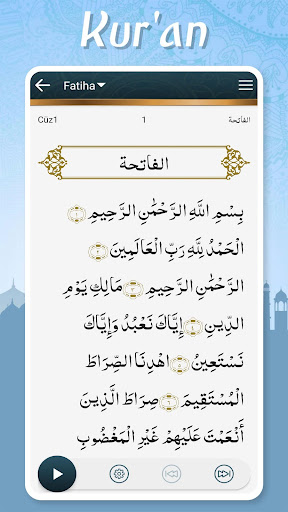 Kur'an
Fatiha
Cüz1 1 الفاتحة
الفاتحة
بِسْمِ اللَّهِ الرَّحْمَٰنِ الرَّحِيمِ ١
الْحَمْدُ لِلَّهِ رَبِّ الْعَالَمِينَ ٢
الرَّحْمَٰنِ الرَّحِيمِ ٣ مَالِكِ يَوْمِ
الدِّينِ ٤ إِيَّاكَ نَعْبُدُ وَإِيَّاكَ
نَسْتَعِينُ ٥ اهْدِنَا الصِّرَاطَ
الْمُسْتَقِيمَ ٦ صِرَاطَ الَّذِينَ
أَنْعَمْتَ عَلَيْهِمْ غَيْرِ الْمَغْضُوبِ